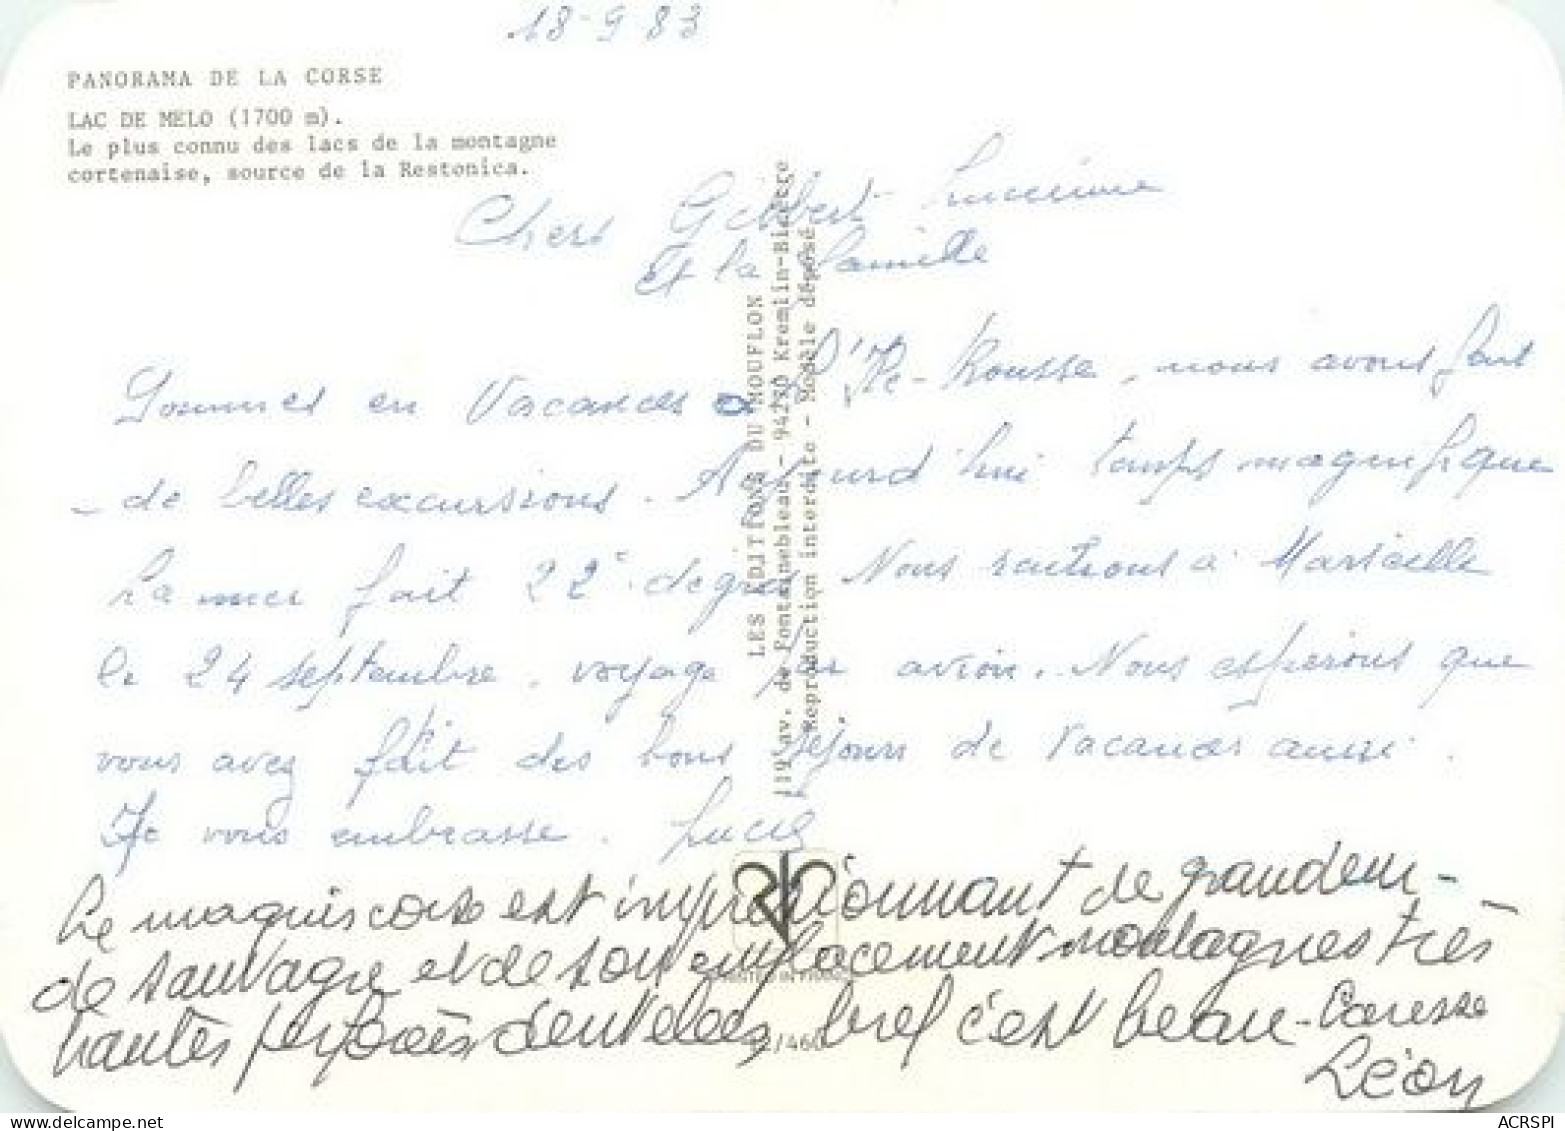 18-9 83
PANORAMA DE LA CORSE
LAC DE MELO (1700 m).
Le plus connu des lacs de la montagne
cortenaise, source de la Restonica.
Chers Gilbert Lucienne
et la famille
Sommes en Vacances a l'Ile-Rousse, nous avons fait
de belles excursions. Aujourd'hui temps magnifique
La mer fait 22° degrés Nous rentrons à Marseille
le 24 septembre, voyage par avion. Nous espérons que
vous avez fait des bons séjours de vacances aussi.
Je vous embrasse. Lucie
Le maquis corse est impressionnant de grandeur-
de sauvagie et de son emplacement montagnes très
hautes dentelées, bref c'est beau- Caresse
Léon
LES ÉDITIONS DU MOUFLON
119, av. de Fontainebleau - 94270 Kremlin-Bicêtre
Reproduction interdite - Modèle déposé.
/460
ACRSPI